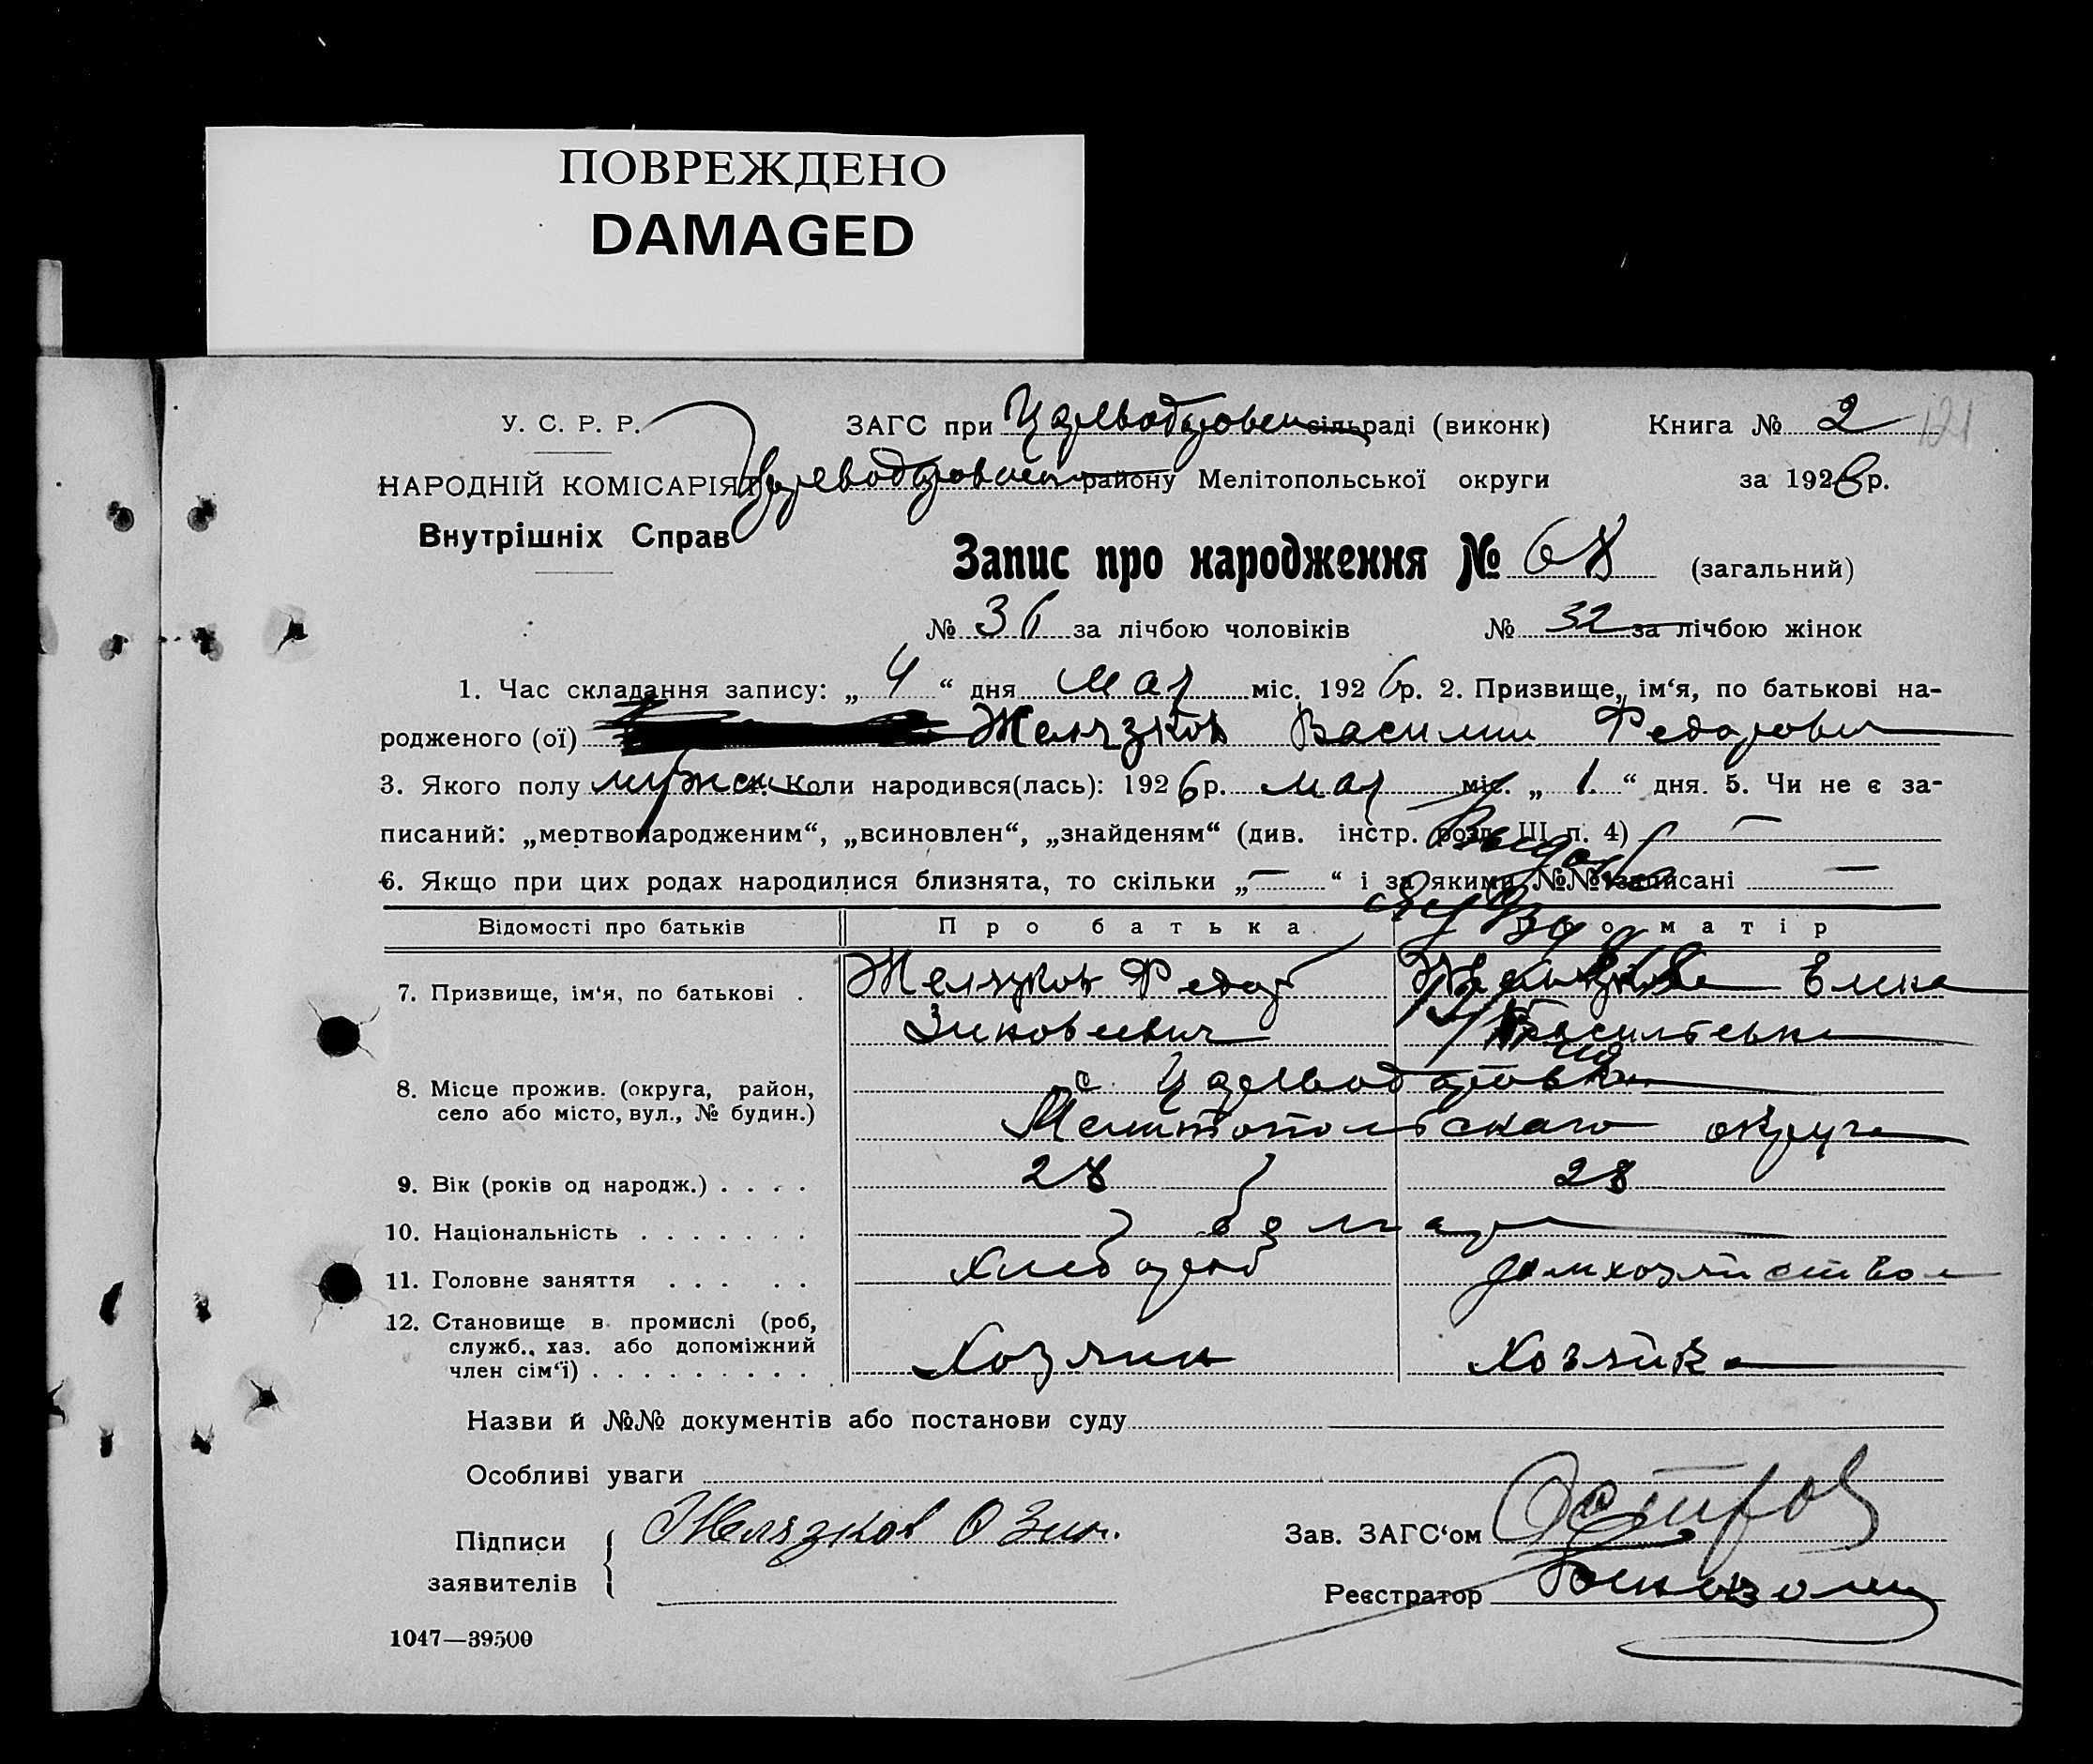 ПОВРЕЖДЕНО
DAMAGED
У. С. Р. Р.
ЗАГС при сільраді (виконк)
Книга № 2
121
НАРОДНІЙ КОМІСАРІЯТ
району Мелітопольської округи
за 1926 р.
Внутрішніх Справ
Запис про народження № 68 (загальний)
№ 36 за лічбою чоловіків № 32 за лічбою жінок
1. Час складання запису: „ 4 “ дня мая міс. 1926 р. 2. Призвище, ім‘я, по батькові на-
родженого (ої) Желязков Василий Федорович
3. Якого полу мужск 4. Коли народився(лась): 1926 р. мая міс. „ 1. “ дня. 5. Чи не є за-
писаний: „мертвонародженим“, „всиновлен“, „знайденям“ (див. інстр. розд. III п. 4) —
6. Якщо при цих родах народилися близнята, то скільки „ — “ і за якими №№ записані —
Відомості про батьків
Про батька
Про матір
7. Призвище, ім‘я, по батькові .
Желязков Федор
Желязкова Елена
Зиновеевич
Васильевна
8. Місце прожив. (округа, район,
село або місто, вул., № будин.)
с.
Мелитопольскаго округа
9. Вік (років од народж.) . . . .
28
28
10. Національність . . . . . . .
болгары
11. Головне заняття . . . . .
хлебороб
домхозяйство
12. Становище в промислі (роб,
служб., хаз. або допоміжний
член сім‘ї) . . . . . . . . .
Хозяин
Хозяйка
Назви й №№ документів або постанови суду
Особливі уваги
Підписи
заявителів
Желязков Ф Зин.
Зав. ЗАГС‘ом
Реєстратор
1047—39500